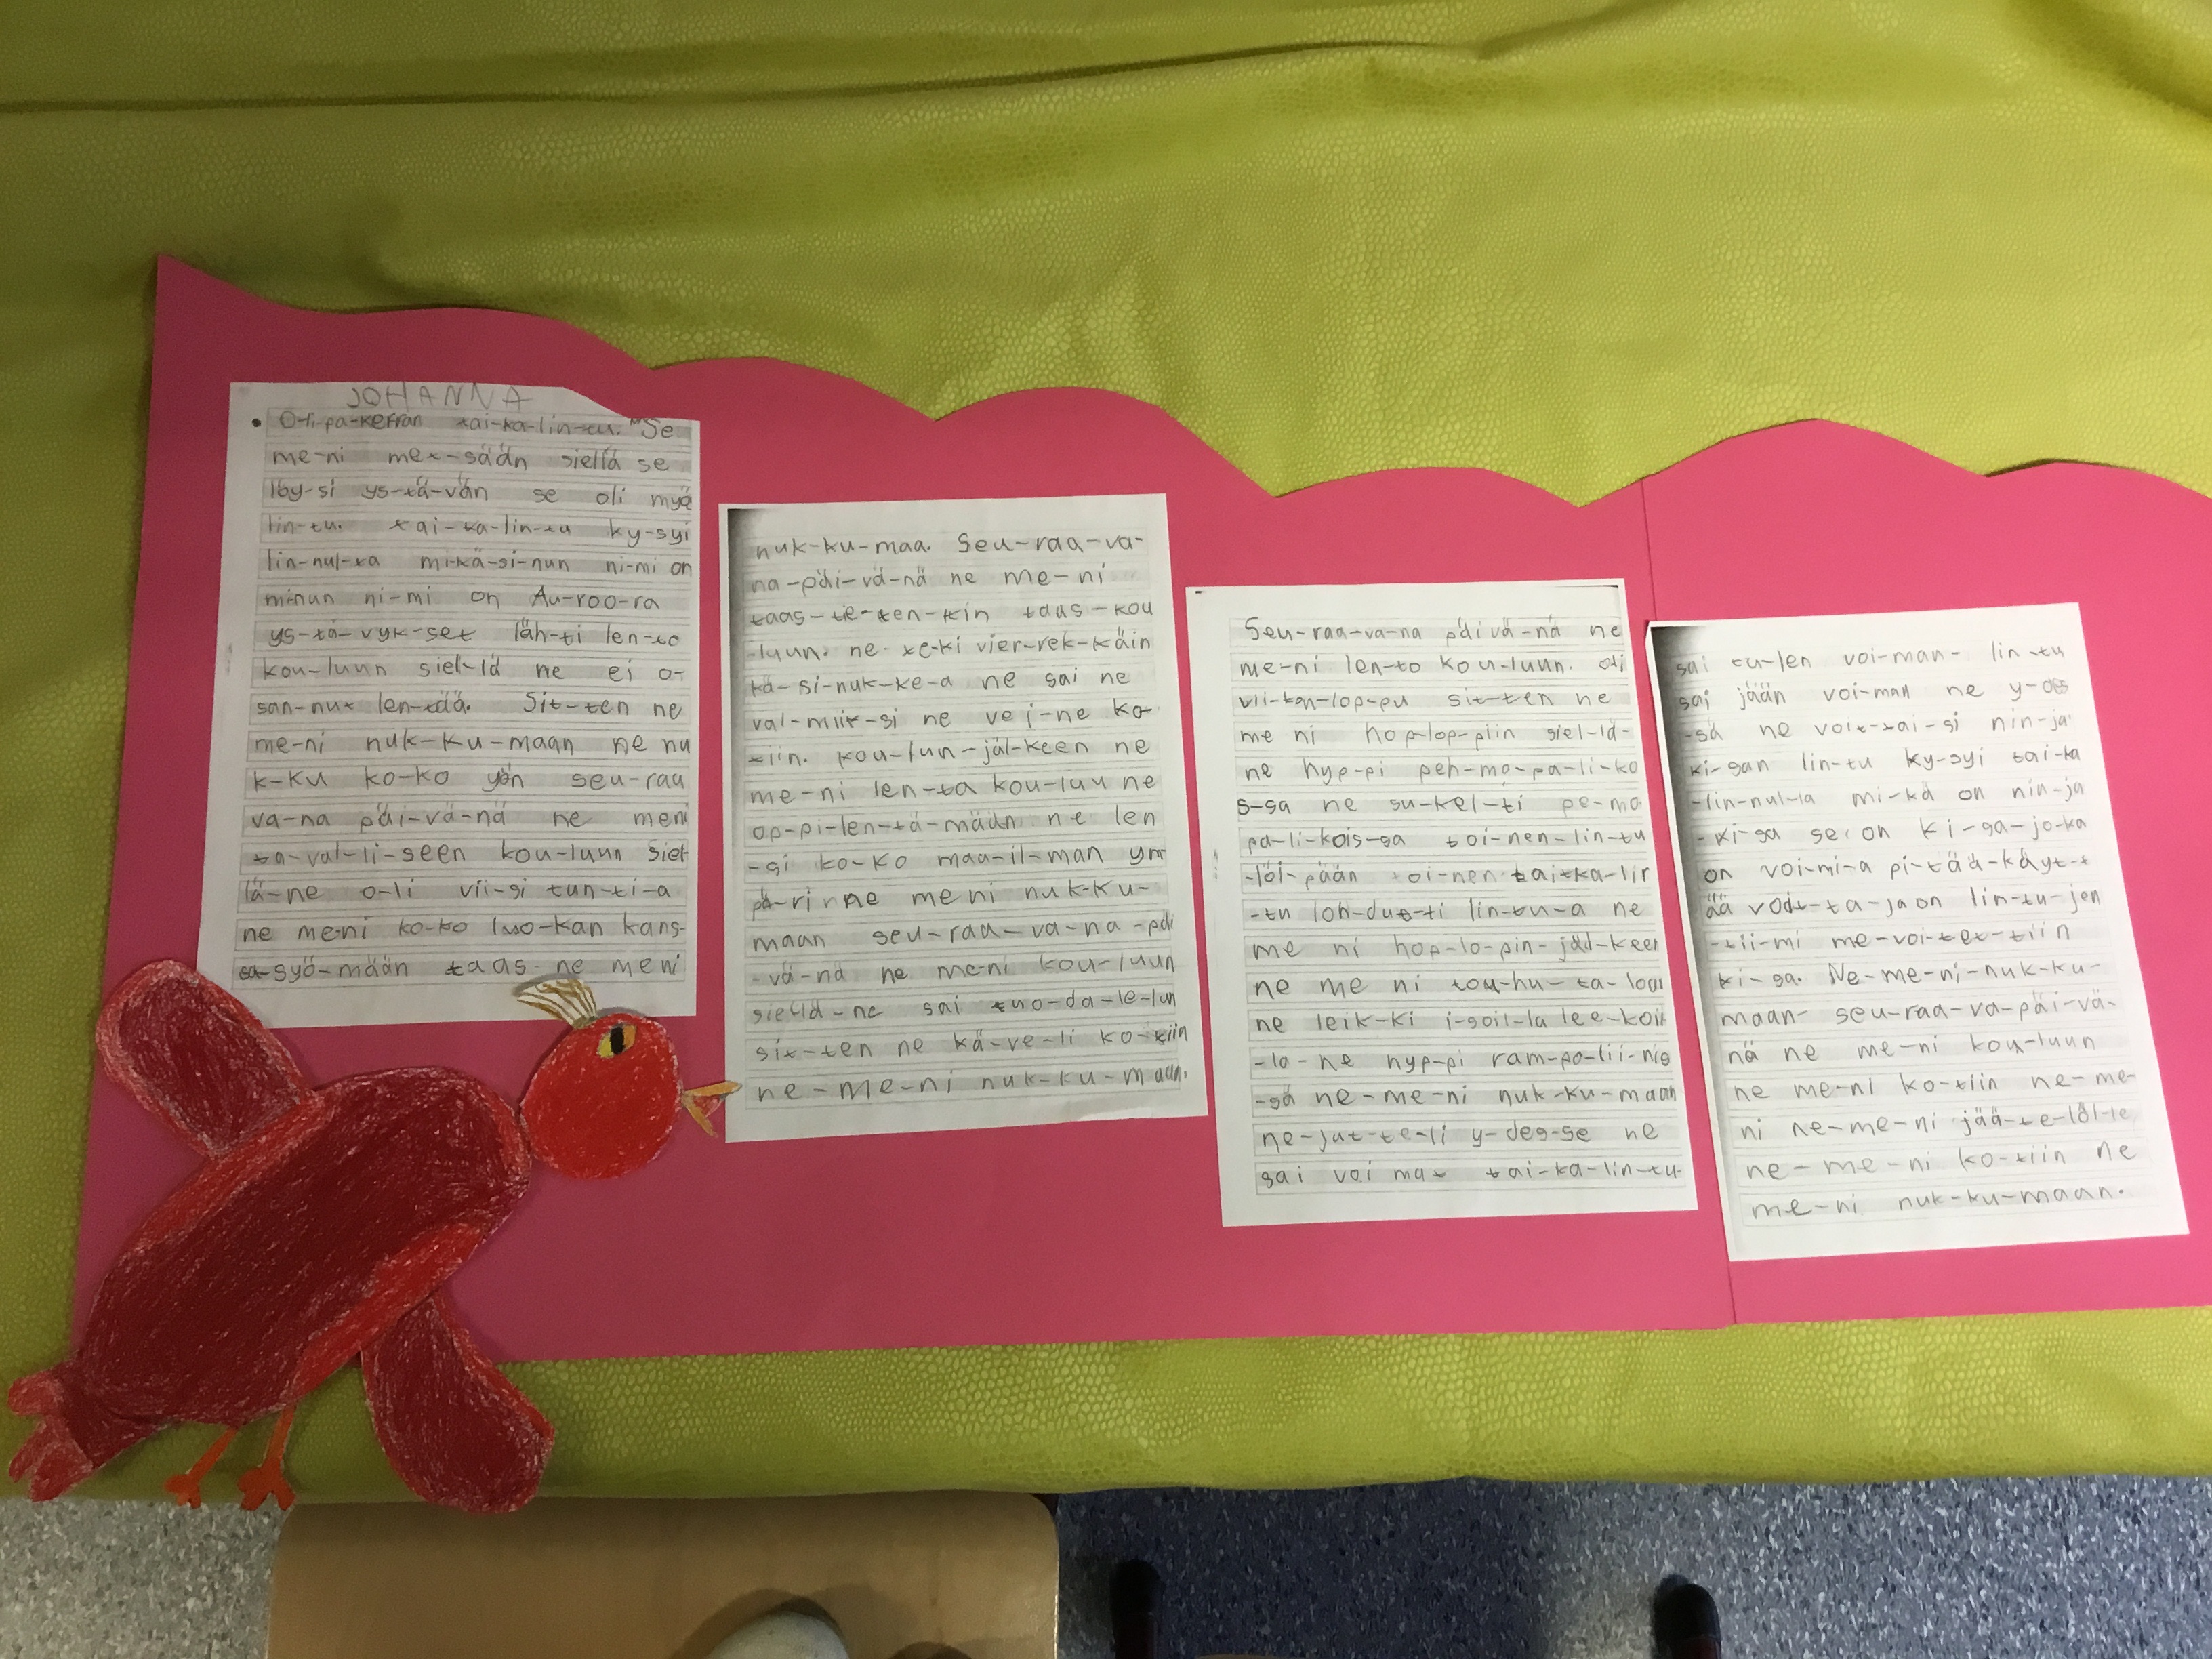 JOHANNA
O-li-pa-kerran tai-ka-lin-tu. Se
me-ni met-sään siellä se
löy-si ys-tä-vän se oli myö
lin-tu. tai-ka-lin-tu ky-syi
lin-nul-ta mi-kä-si-nun ni-mi on
minun ni-mi on Au-roo-ra
ys-tä-vyk-set läh-ti len-to
kou-luun siel-lä ne ei o-
san-nut len-tää. Sit-ten ne
me-ni nuk-ku-maan ne nu
k-ku ko-ko yön seu-raa
va-na päi-vä-nä ne meni
ta-val-li-seen kou-luun siel
lä-ne o-li vii-si tun-ti-a
ne me-ni ko-ko luo-kan kans-
sa-syö-mään taas ne meni
nuk-ku-maa. Seu-raa-va-
na-päi-vä-nä ne me-ni
taas-te-ten-kin taas-kou
-luun. ne te-ki vier-rek-käin
kä-si-nuk-ke-a ne sai ne
val-miik-si ne vei-ne ko-
tiin. kou-lun-jäl-keen ne
me-ni len-ta kou-luu ne
op-pi-len-tä-mään ne len
-si ko-ko maa-il-man ym
pä-ri ne me ni nuk-ku-
maan seu-raa-va-na-päi
-vä-nä ne me-ni kou-luun
siellä-ne sai tuo-da-le-lun
sit-ten ne kä-ve-li ko-tiin
ne-me-ni nuk-ku-maan.
Seu-raa-va-na päi vä-nä ne
me-ni len-to kou-luun. oli
vii-kon-lop-pu sit-ten ne
me ni hop-lop-piin siel-lä-
ne hyp-pi peh-mo-pa-li-ko
s-sa ne su-kel-ti pe-mo
pa-li-kois-sa toi-nen-lin-tu
-löi-pään toi-nen tai-ka-lin
-tu loh-dut-ti lin-tu-a ne
me ni hop-lo-pin-jäl-keen
ne me ni tou-hu-ta-loon
ne leik-ki i-soil-la lee-koil
-lo-ne hyp-pi ram-po-lii-nis
-sä ne-me-ni nuk-ku-maan
ne-jut-te-li y-des-se ne
sai voi mat tai-ka-lin-tu-
sai tu-len voi-man- lin-tu
sai jään voi-man ne y-des
-sä ne voit-tai-si nin-ja
ki-san lin-tu ky-syi tai-ka
-lin-nul-la mi-kä on nin-ja
-ki-sa se on ki-sa-jo-ka
on voi-mi-a pi-tää-käyt-t
ää voit-ta-ja on lin-tu-jen
-tii-mi me-voi-tet-tiin
ki-sa. Ne-me-ni-nuk-ku-
maan- seu-raa-va-päi-vä-
nä ne me-ni kou-luun
ne me-ni ko-tiin ne-me-
ni ne-me-ni jää-te-löl-le
ne-me-ni ko-tiin ne
me-ni nuk-ku-maan.